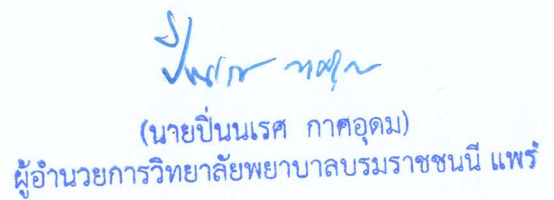 (นายปิ่นนเรศ กาศอุดม)
ผู้อำนวยการวิทยาลัยพยาบาลบรมราชชนนี แพร่